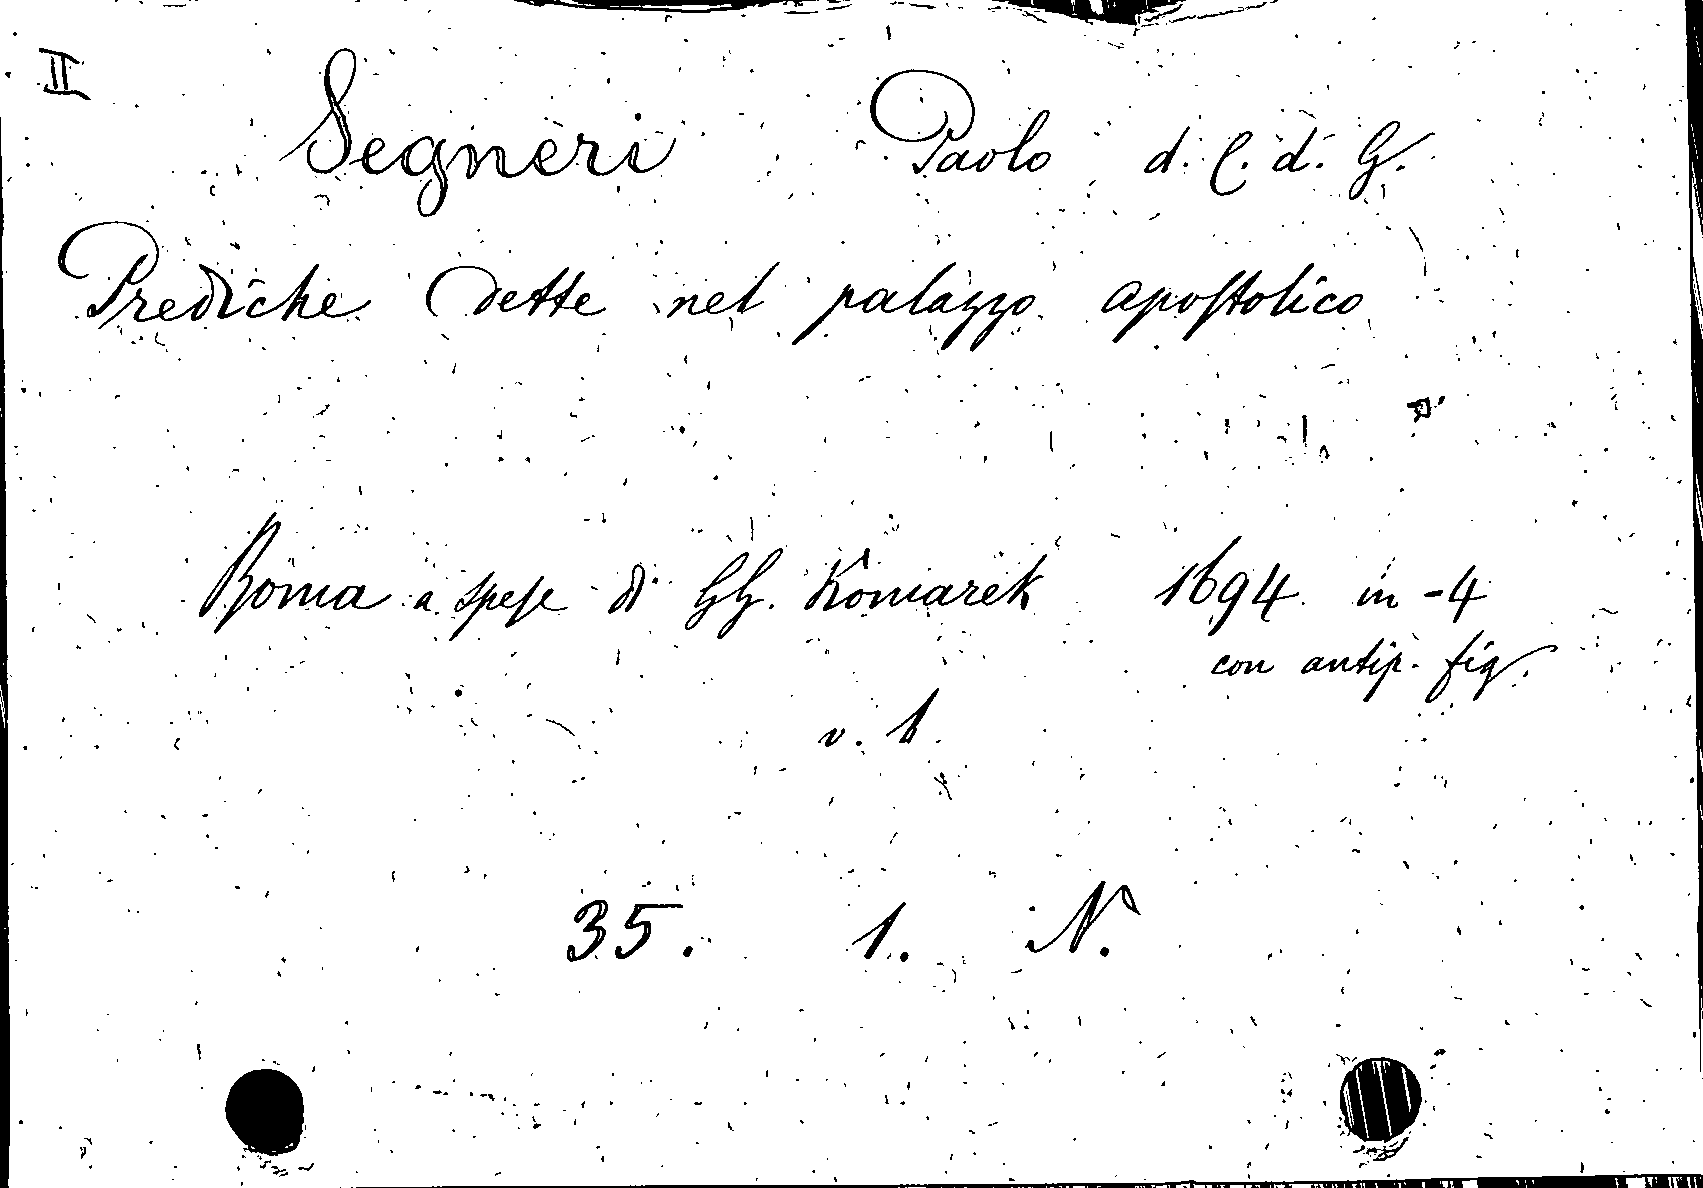 II
Segneri Paolo d. C. d. G.
Prediche dette nel palazzo apostolico
Roma a spese di GG. Komarek 1694 in -4
con antip. fig.
v. 1
35. 1. N.